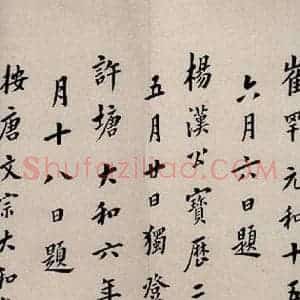 崔罕元和十五
六月六日題
楊漢公寶歷二
五月廿日獨登
許塘大和六年
月十八日題
按唐文宗大和
Shufaziliao.com